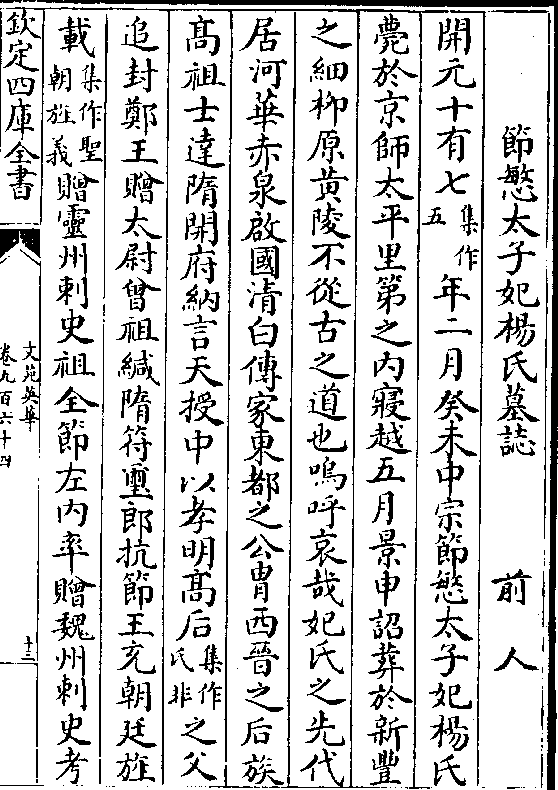 節愍太子妃楊氏墓誌　前人
開元十有七集作五年二月癸未中宗節愍太子妃楊氏
薨於京師太平里第之内寢越五月景申詔葬於新豐
之細柳原黄陵不從古之道也嗚呼哀哉妃氏之先代
居河華赤泉啟國清白傳家東都之公胄西晉之后族
髙祖士達隋開府納言天授中以孝明髙后集作氏非之父
追封鄭王贈太尉曾祖緘隋符璽郎抗節王充朝廷旌
載集作聖朝旌義贈靈州刺史祖全節左内率贈魏州刺史考
欽定四庫全書
文苑英華
卷九百六十四
十三